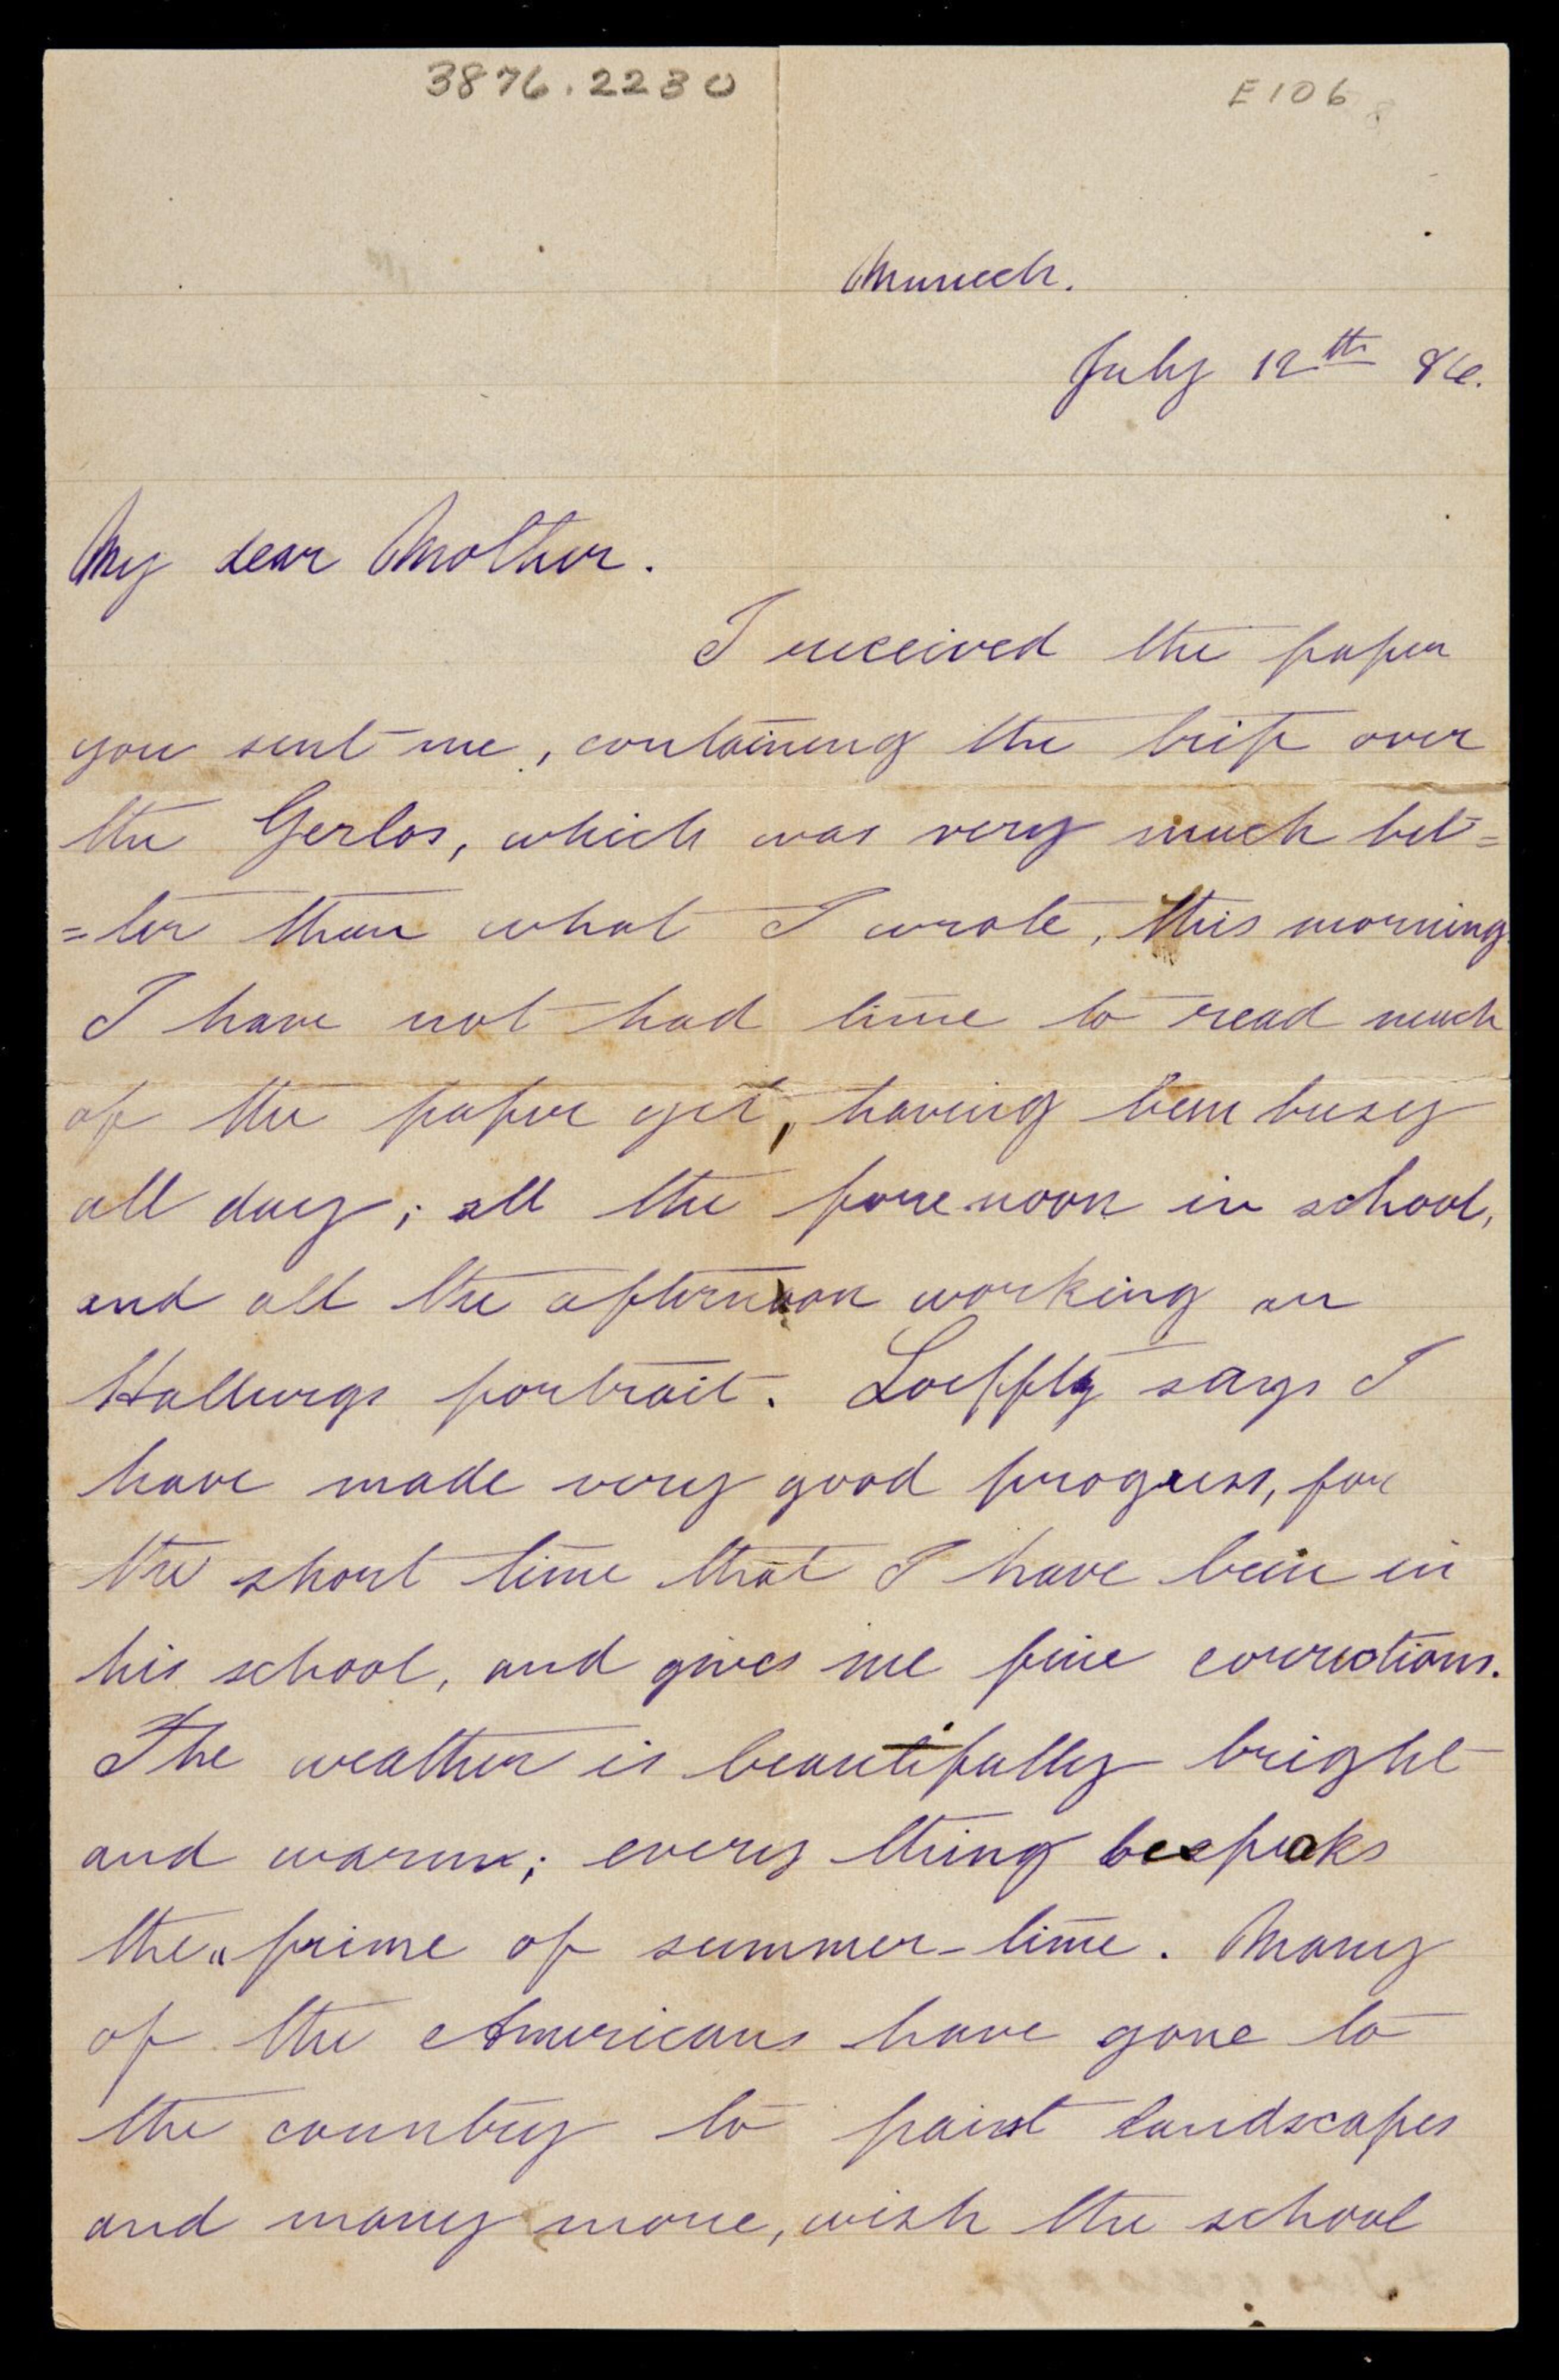 3876.2230
E106
Munich.
July 12th 86.
My dear Mother.
I received the paper
you sent me, containing the trip over
the Gerlos, which was very much bet=
=ter than what I wrote, this morning
I have not had time to read much
of the paper yet, having been busy
all day; all the forenoon in school,
and all the afternoon working on
Hallwigs portrait. Loefftz says I
have made very good progress, for
the short time that I have been in
his school, and gives me fine corrections.
The weather is beautifully bright
and warm; every thing bespeaks
the "prime of summer-time. Many
of the Americans have gone to
the country to paint landscapes
and many more, wish the school